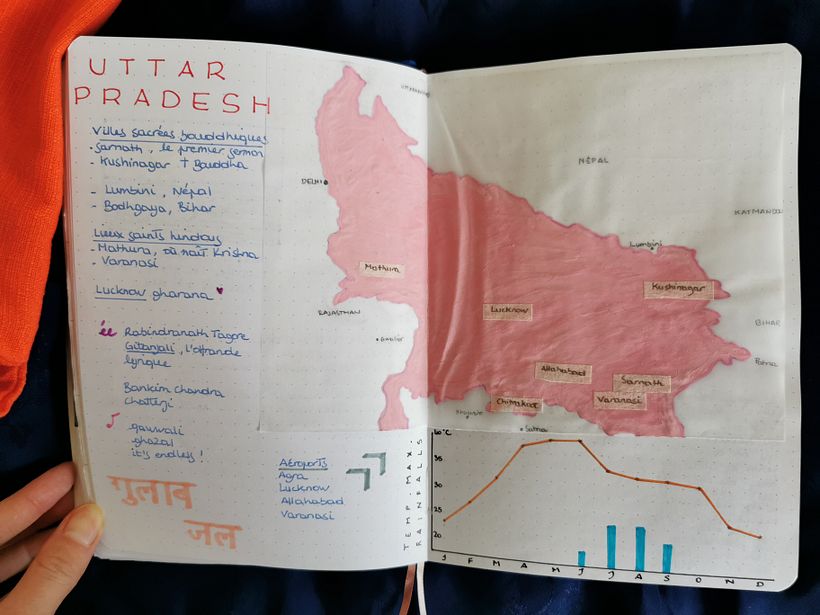 UTTAR
PRADESH
Villes sacrées bouddhiques
- Sarnath, le premier sermon
- Kushinagar † Bouddha
- Lumbini, Népal
- Bodhgaya, Bihar
Lieux saints hindous
- Mathura, où naît Krishna
- Varanasi
Lucknow gharana ♥
Rabindranath Tagore
Gitanjali, l'offrande
lyrique
Bankim Chandra
Chatterji
♪ qawwali
ghazal
it's endless!
गुलाब
जल
Aéroports
Agra
Lucknow
Allahabad
Varanasi
NÉPAL
DELHI
KATMANDOU
Lumbini
Mathura
Kushinagar
Lucknow
RAJASTHAN
BIHAR
Gwalior
Patna
Allahabad
Sarnath
Varanasi
Chitrakoot
Khajuraho
Satna
TEMP. MAX.
RAINFALLS
40°C
35
30
25
20
J F M A M J J A S O N D